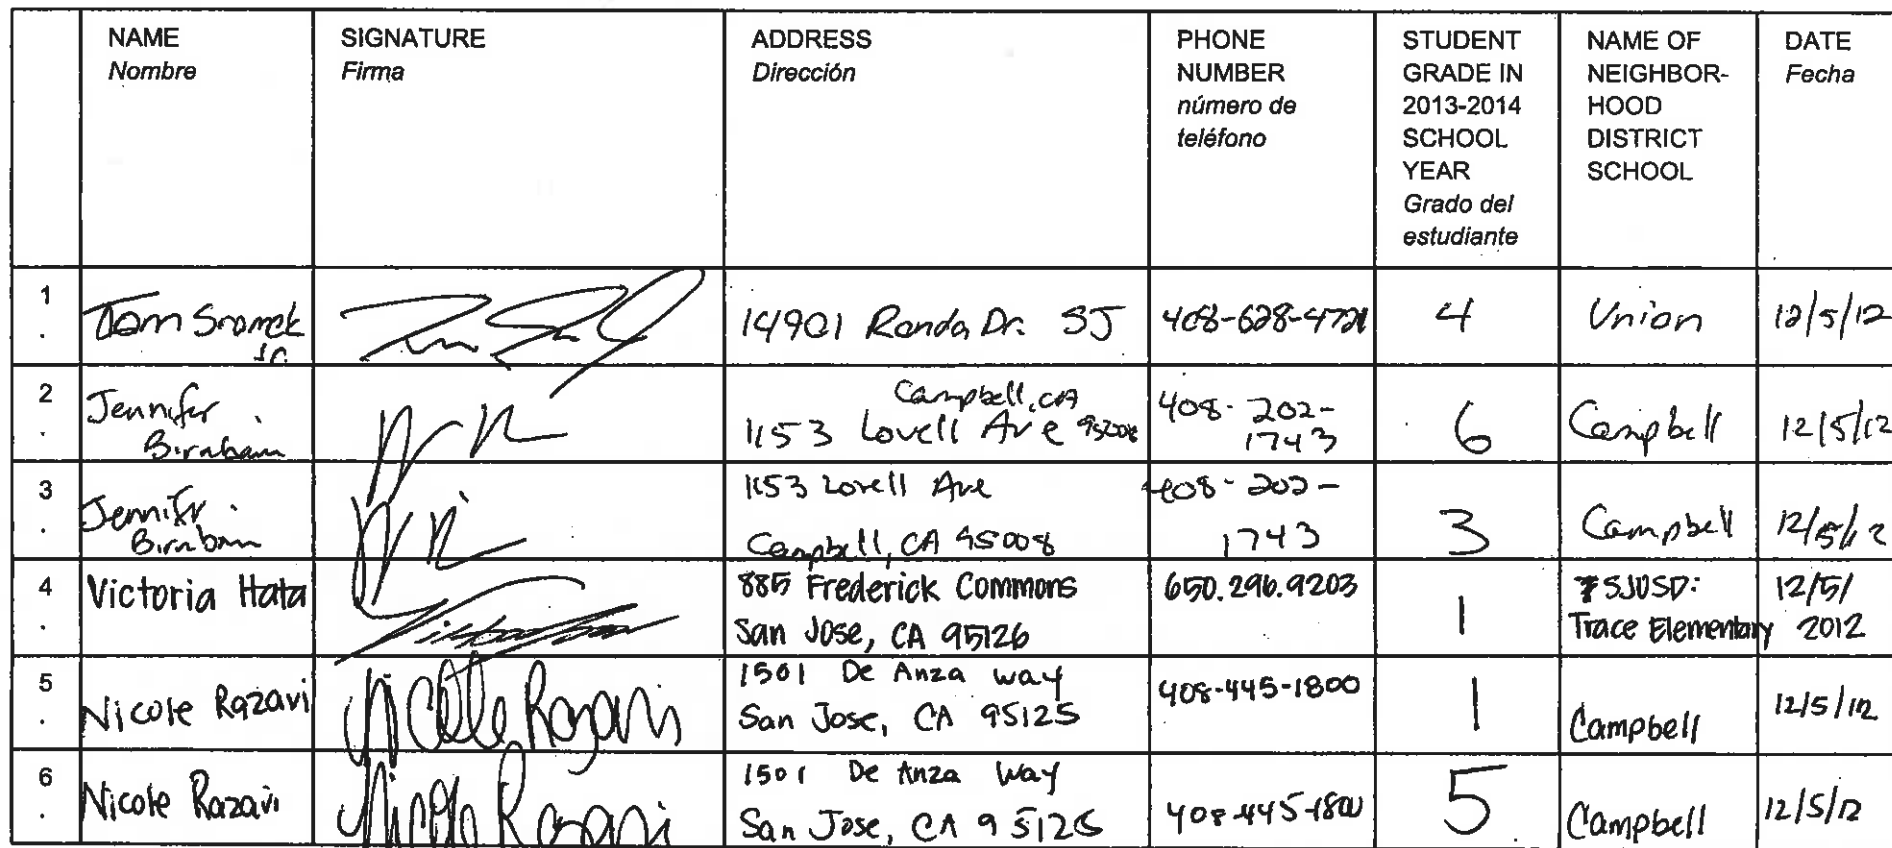 NAME
Nombre
SIGNATURE
Firma
ADDRESS
Dirección
PHONE
NUMBER
número de
teléfono
STUDENT
GRADE IN
2013-2014
SCHOOL
YEAR
Grado del
estudiante
NAME OF
NEIGHBOR-
HOOD
DISTRICT
SCHOOL
DATE
Fecha
1
.
Tom Sromek
Jr.
14901 Ronda Dr. SJ
4
Union
12/5/12
2
.
Jennifer
Birnbaum
Campbell, CA
1153 Lovell Ave 95008
408-202-
1743
6
Campbell
12/5/12
3
.
Jennifer
Birnbaum
1153 Lovell Ave
Campbell, CA 95008
408-202-
1743
3
Campbell
12/5/12
4
.
Victoria Hata
885 Frederick Commons
San Jose, CA 95126
650.296.9203
1
SJUSD:
Trace Elementary
12/5/
2012
5
.
Nicole Razavi
Nicole Razavi
1501 De Anza Way
San Jose, CA 95125
408-445-1800
1
Campbell
12/5/12
6
.
Nicole Razavi
Nicole Razavi
1501 De Anza Way
San Jose, CA 95125
408-445-1800
5
Campbell
12/5/12